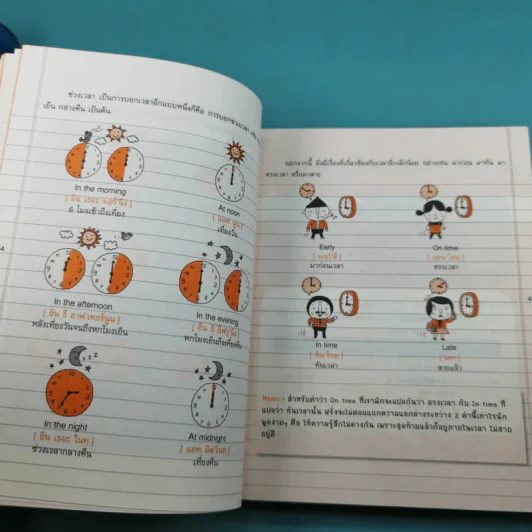 ช่วงเวลา เป็นการบอกเวลาอีกแบบหนึ่งก็คือ การบอกช่วงเวลา เช่น
เย็น กลางคืน เป็นต้น
In the morning
[ อิน เธอะ มอร์นิ่ง ]
6 โมงเช้าถึงเที่ยง
At noon
[ แอท นูน ]
เที่ยงวัน
In the afternoon
[ อิน ธิ อาฟเทอร์นูน ]
หลังเที่ยงวันจนถึงหกโมงเย็น
In the evening
[ อิน ธิ อีฟนิ่ง ]
หกโมงเย็นถึงเที่ยงคืน
zzz
In the night
[ อิน เธอะ ไนท ]
ช่วงเวลากลางคืน
At midnight
[ แอท มิดไนท ]
เที่ยงคืน
นอกจากนี้ ยังมีเรื่องที่เกี่ยวข้องกับเวลาอีกเล็กน้อย อย่างเช่น มาก่อน มาทัน มา
ตรงเวลา หรือมาสาย
Early
[ เออร์ลิ ]
มาก่อนเวลา
On time
[ ออน ไทม ]
ตรงเวลา
In time
[ อิน ไทม ]
ทันเวลา
Late
[ เลท ]
สายแล้ว
Memo : สำหรับคำว่า On time ที่เรามักจะแปลกันว่า ตรงเวลา กับ In time ที่
แปลว่า ทันเวลานั้น ฝรั่งจะไม่ค่อยแยกความแตกต่างระหว่าง 2 คำนี้เท่าไรนัก
พูดง่ายๆ คือ ให้ความรู้สึกไม่ต่างกัน เพราะสุดท้ายแล้วก็อยู่ภายในเวลา ไม่สาย
อยู่ดี